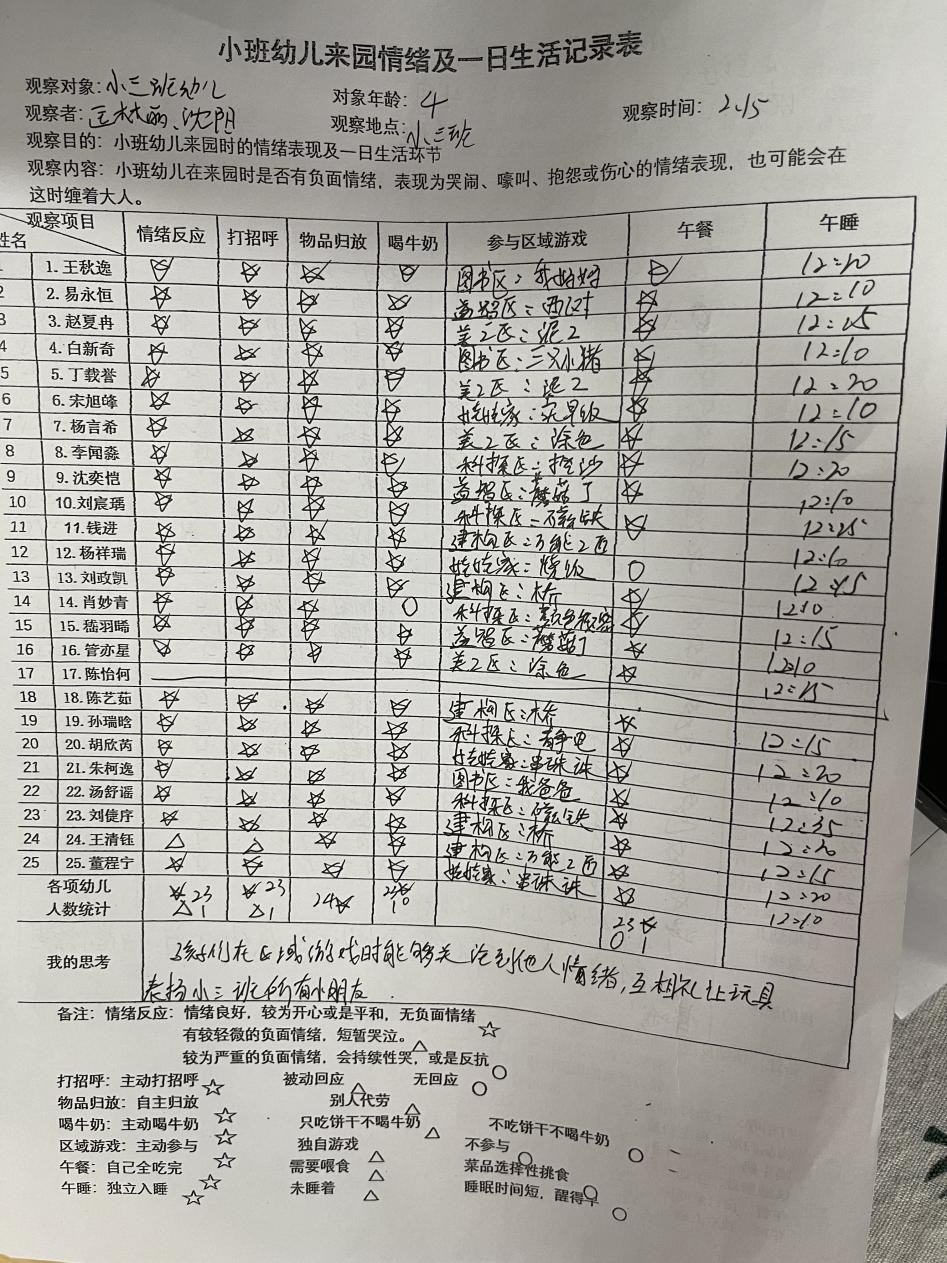 小班幼儿来园情绪及一日生活记录表
观察对象：小三班幼儿 对象年龄：4 观察时间：2.15
观察者：沈阳 观察地点：小三班
观察目的：小班幼儿来园时的情绪表现及一日生活环节
观察内容：小班幼儿在来园时是否有负面情绪，表现为哭闹、嚎叫、抱怨或伤心的情绪表现，也可能会在
这时缠着大人。
观察项目 姓名 情绪反应 打招呼 物品归放 喝牛奶 参与区域游戏 午餐 午睡
1 1.王秋逸 ☆ ☆ ☆ ☆ 图书区： ☆
2 2.易永恒 ☆ ☆ ☆ ☆ 益智区： ☆ 12:10
3 3.赵夏冉 ☆ ☆ ☆ ☆ 美工区：泥工 ☆
4 4.白新奇 ☆ ☆ ☆ ☆ 图书区：三只小猪 ☆ 12:10
5 5.丁载誉 ☆ ☆ ☆ ☆ 美工区：泥工 ☆ 12:20
6 6.宋旭峰 ☆ ☆ ☆ ☆ 娃娃家： ☆ 12:10
7 7.杨言希 ☆ ☆ ☆ ☆ 美工区：涂色 ☆ 12:15
8 8.李闻淼 ☆ ☆ ☆ ☆ 科探区： ☆ 12:20
9 9.沈奕恺 ☆ ☆ ☆ ☆ 益智区：蘑菇丁 ☆ 12:10
10 10.刘宸瑀 ☆ ☆ ☆ ☆ 科探区：磁铁 ☆
11 11.钱进 ☆ ☆ ☆ ☆ 建构区：万能工匠 12:10
12 12.杨祥瑞 ☆ ☆ ☆ ☆ 娃娃家：烧饭 ○
13 13.刘政凯 ☆ ☆ ☆ ☆ 建构区：桥 ☆ 12:10
14 14.肖妙青 ☆ ☆ ☆ ○ 科探区： ☆ 12:15
15 15.嵇羽晞 ☆ ☆ ☆ ☆ 益智区：蘑菇丁 ☆ 12:10
16 16.管亦星 ☆ ☆ ☆ ☆ 美工区：涂色 ☆ 12:15
17 17.陈怡何
18 18.陈艺茹 ☆ ☆ ☆ ☆ 建构区：桥 ☆ 12:15
19 19.孙瑞晗 ☆ ☆ ☆ ☆ 科探区：静电 ☆ 12:20
20 20.胡欣芮 ☆ ☆ ☆ ☆ 娃娃家：串珠珠 ☆ 12:10
21 21.朱柯逸 ☆ ☆ ☆ ☆ 图书区：我爸爸 ☆ 12:35
22 22.汤舒谣 ☆ ☆ ☆ ☆ 科探区：磁铁 ☆ 12:20
23 23.刘倢序 ☆ ☆ ☆ ☆ 建构区：桥 ☆ 12:15
24 24.王清钰 △ △ ☆ ☆ 建构区：万能工匠 ☆ 12:20
25 25.董程宁 ☆ ☆ ☆ ☆ 娃娃家：串珠珠 ☆ 12:10
各项幼儿 ☆23 ☆23 24☆ 23☆ 23☆
人数统计 △1 △1 1○ ○1
我的思考 孩子们在区域游戏时能够关注到他人情绪，互相礼让玩具
表扬小三班所有小朋友.
备注：情绪反应：情绪良好，较为开心或是平和，无负面情绪☆
有较轻微的负面情绪，短暂哭泣。△
较为严重的负面情绪，会持续性哭，或是反抗○
打招呼：主动打招呼☆ 被动回应△ 无回应○
物品归放：自主归放☆ 别人代劳△
喝牛奶：主动喝牛奶☆ 只吃饼干不喝牛奶△ 不吃饼干不喝牛奶○
区域游戏：主动参与☆ 独自游戏△ 不参与○
午餐：自己全吃完☆ 需要喂食△ 菜品选择性挑食○
午睡：独立入睡☆ 未睡着△ 睡眠时间短，醒得早○